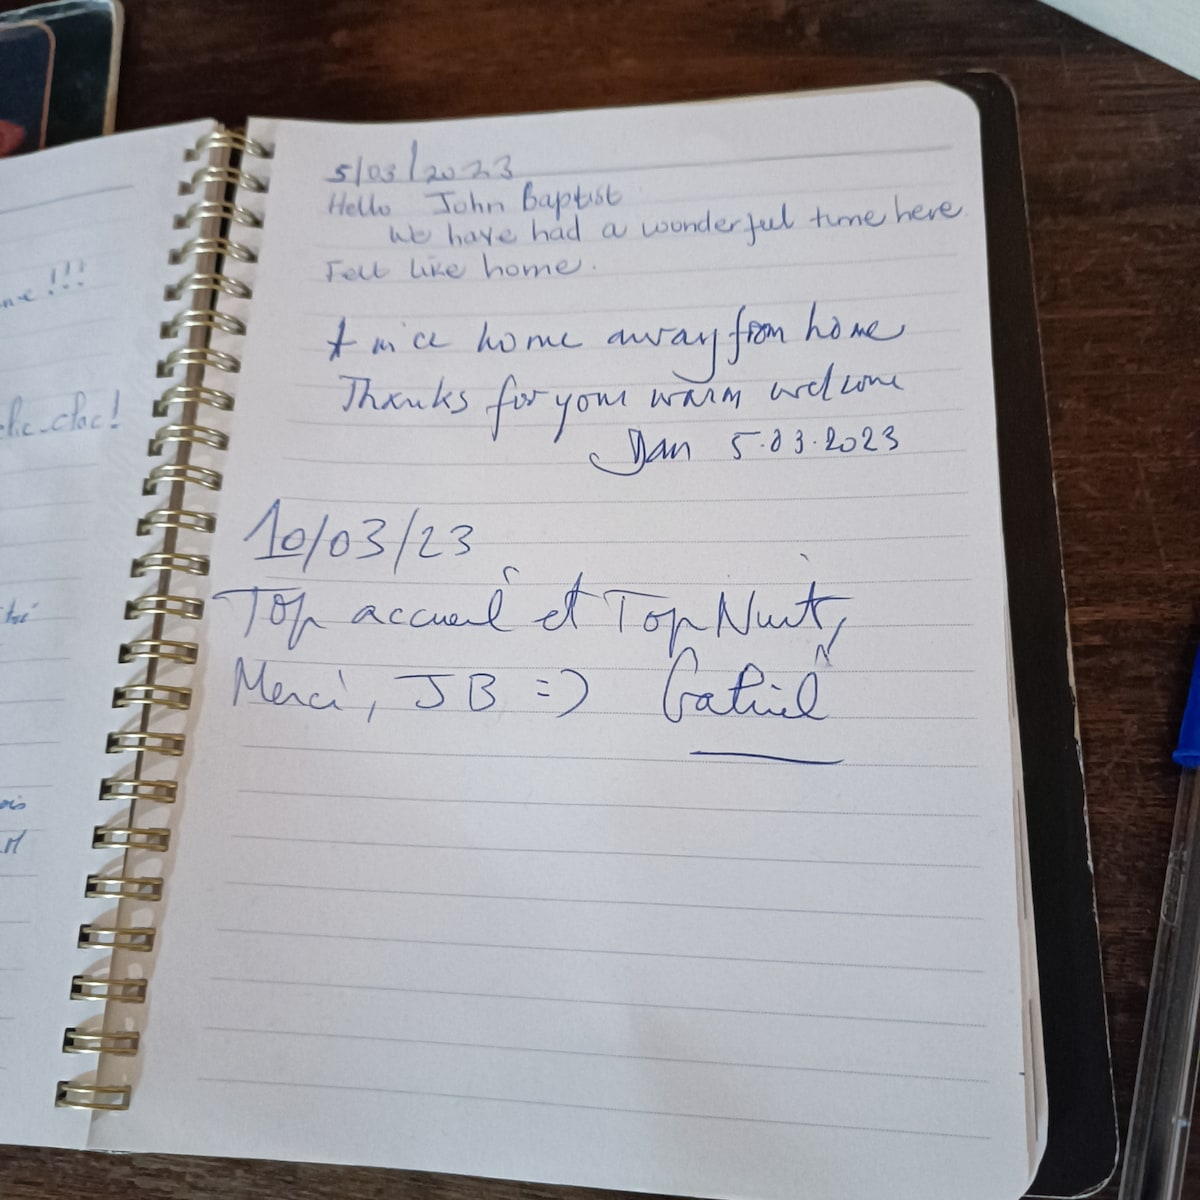 ne !!!
clic-clac!
5/03/2023
Hello John Baptist
We have had a wonderful time here.
Felt like home.
A nice home away from home
Thanks for your warm welcome
Dan 5.03.2023
10/03/23
Top accueil et Top Nuit,
Merci, JB =) Gabriel